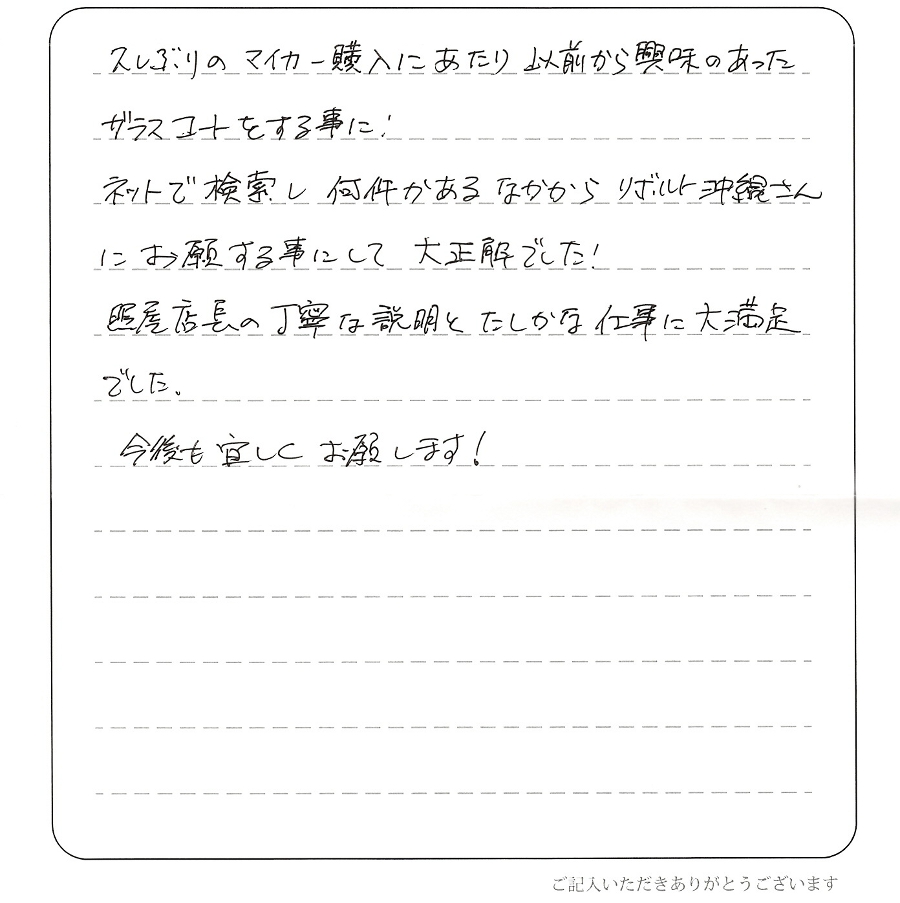 久しぶりのマイカー購入にあたり以前から興味のあった
ガラスコートをする事に!
ネットで検索し何件かあるなかからリボルト沖縄さん
にお願する事にして大正解でした!
照屋店長の丁寧な説明とたしかな仕事に大満足
でした。
今後も宜しくお願します!
ご記入いただきありがとうございます